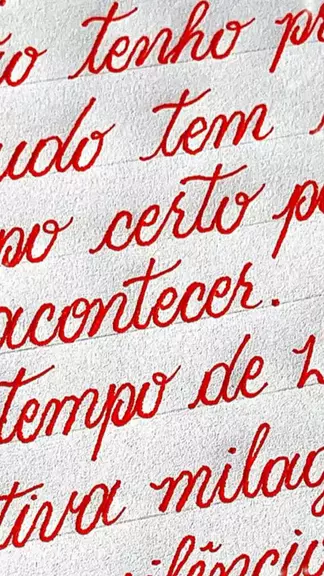 ão tenho p
udo tem
po certo p
acontecer.
tempo de
tiva milag
ilênci